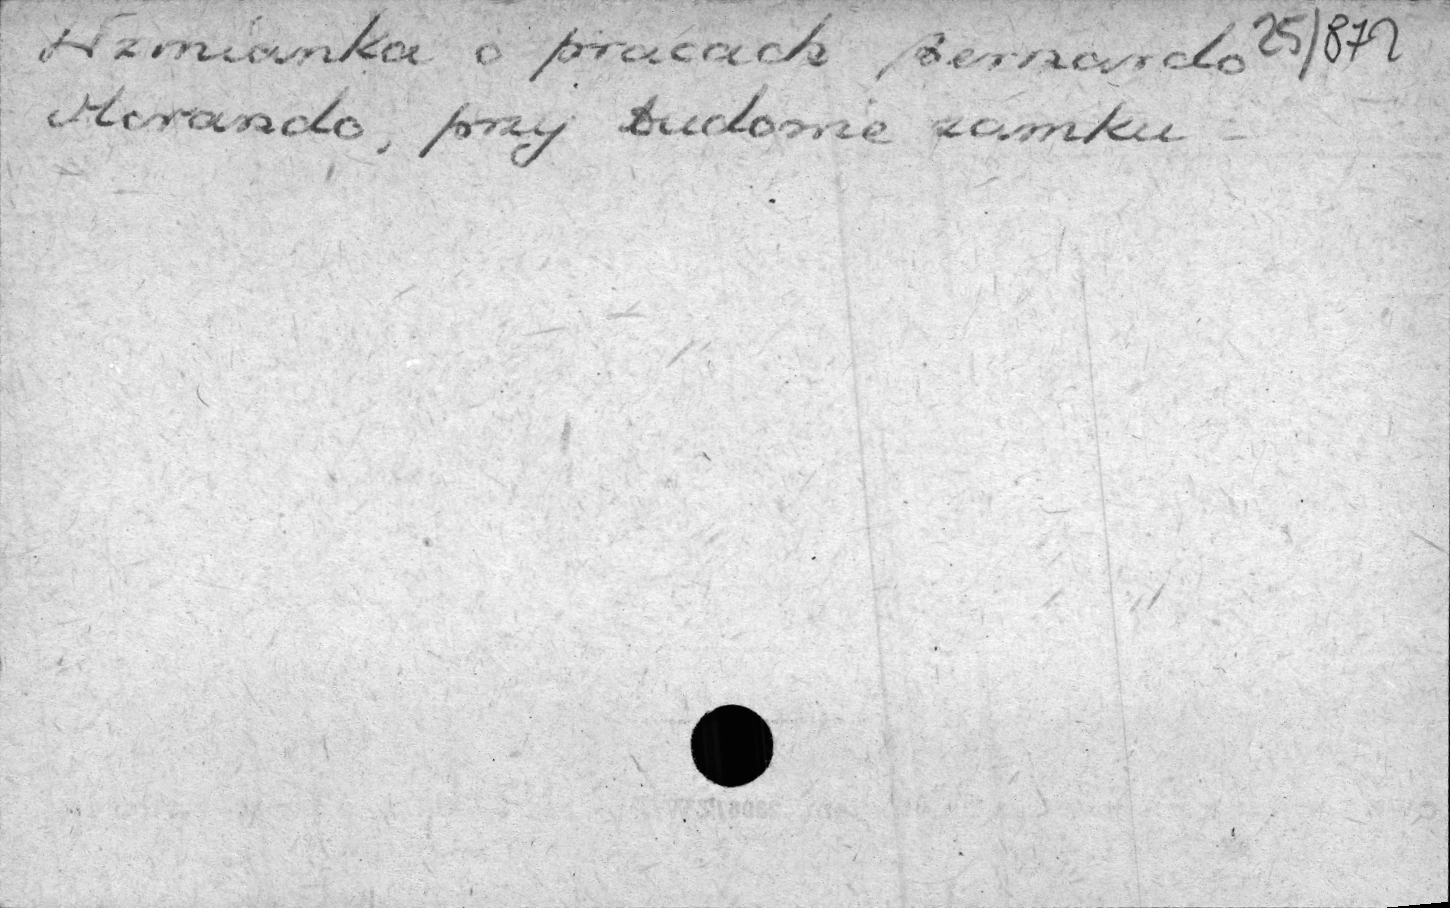 Wzmianka o pracach Bernardo 25/872
Morando, przy budowie zamku -